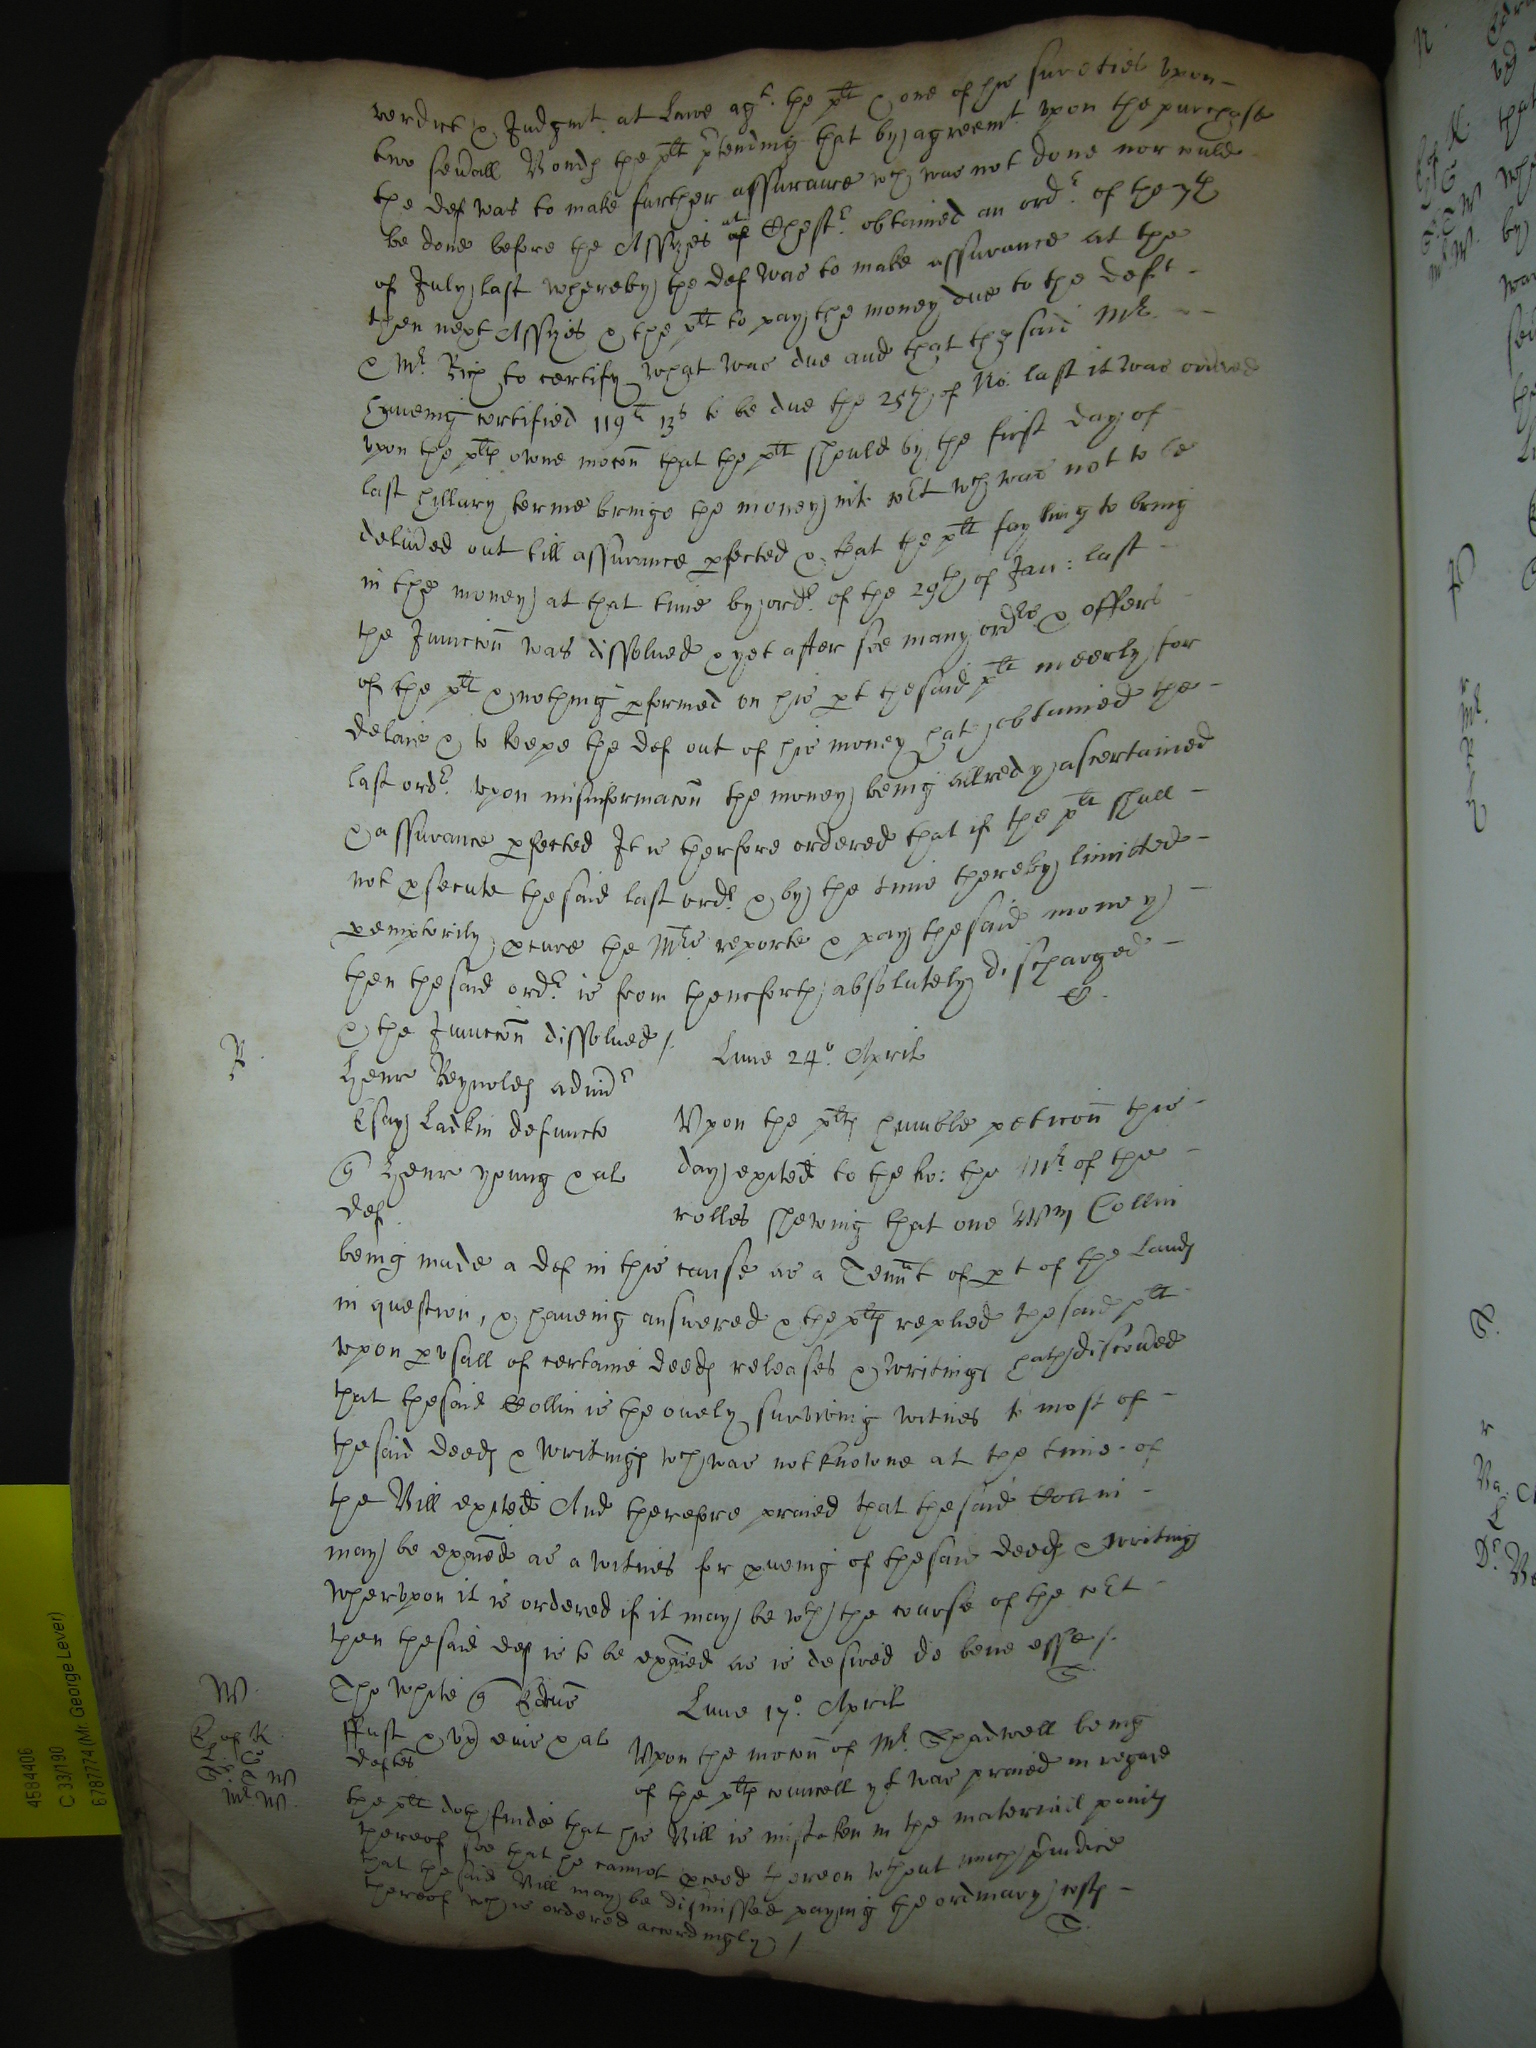 verdict & Judgmt. at Lawe agt. the plt & one of his sureties vpon
two seu'all Bonds the plt p'tending that by agreemt vpon the purchase
the def was to make further assurance wch was not done nor could
be done before the Assizes at Chestr. obtained an ordr. of the 7th
of July last whereby the def was to make assurance at the
then next Assizes & the plt to pay the money due to the deft
& Mr. Rich to certify what was due and that the said Mr.
haueing certified 119li 13s to be due the 25th of No: last it was ordered
vpon the plts owne mocon that the plt should by the first day of
last hillary terme bringe the money into Cort wch was not to be
deliu'ed out till assurance pfected & that the plt fayling to bring
in the money at that time by ordr. of the 29th of Jan: last
the Junccon was dissolued & yet after soe many ordrs & offers
of the plt & nothing pformed on his pt the said plt meerly for
delaie & to keepe the def out of his money hath obtained the
last ordr. vpon misinformacon the money being allredy ascertained
& assurance pfected It is therfore ordered that if the plt shall
not psecute the said last ordr & by the time thereby limitted
pemptorily pcure the Mrs reporte & pay the said money
then the said ordr. is from thenceforth absolutely discharged
& the Junccon dissolued /.
R.
Lune 24o. Aprilis
Henr Reynolds admr
Esay Ladkin defuncte
Vpon the plts humble peticon this
& Henr yoeung & al
day exhited to the ho: the Mr. of the
def
rolles shewing that one Wm Collin
being made a def in this cause as a Tennt of pt of the Lands
in question, & haueing answered & the plts replied the said plt
vpon pvsall of certaine deeds releases & writings hath discou'ed
that the said Collin is the onely surviving witnes to most of
the said deeds & writings wch was not knowne at the time of
the Bill exhited And therefore praied that the said Collin
may be exa'ied as a witnes for pveing of the said deeds & writings
wherevpon it is ordered if it may be wth the course of the Cort
then the said def is to be exa'ied as is desired de bene esse /.
W.
Tho White
Lune 17o. Aprilis
ffust & vx eius & al
deftes
Vpon the mocon of Mr. Chadwell being
of the plts councell yt was praied in regard
the plt doth finde that his Bill is mistaken in the materiall points
thereof soe that he cannot pceed thereon without much p'iudice
that the said Bill may be dismissed paying the ordinary costs
thereof wch is ordered accordingly /
4584406
C 33/190
6787774 (Mr George Lever)